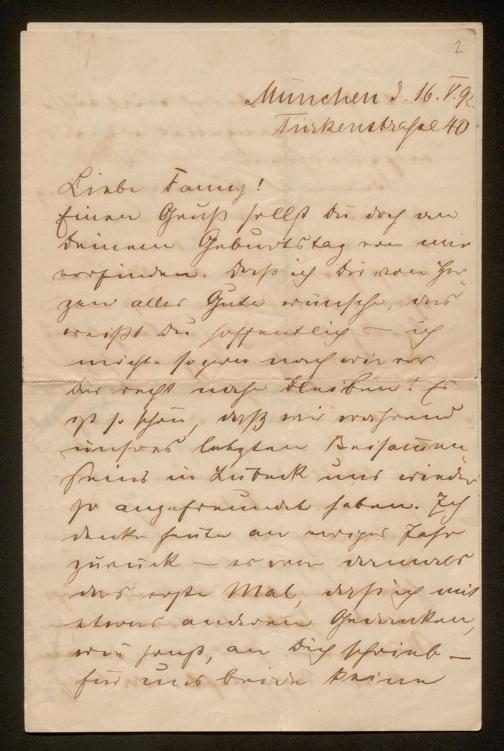 2
München d. 16. V. 92.
Türkenstraße 40
Liebe Fanny!
Einen Gruß sollst Du doch an
Deinem Geburtstag von mir
vorfinden. Daß ich Dir von Her-
zen alles Gute wünsche, das
weißt Du hoffentlich – ich
möchte so gern nach wie vor
Dir recht nahe bleiben! Es
ist so schön, daß wir während
unseres letzten Beisammen
seins in Lübeck uns wieder
so angefreundet haben. Ich
denke heute an voriges Jahr
zurück – es war damals
das erste Mal, daß ich mit
etwas anderen Gedanken,
wie sonst, an Dich schrieb –
für uns beide keine